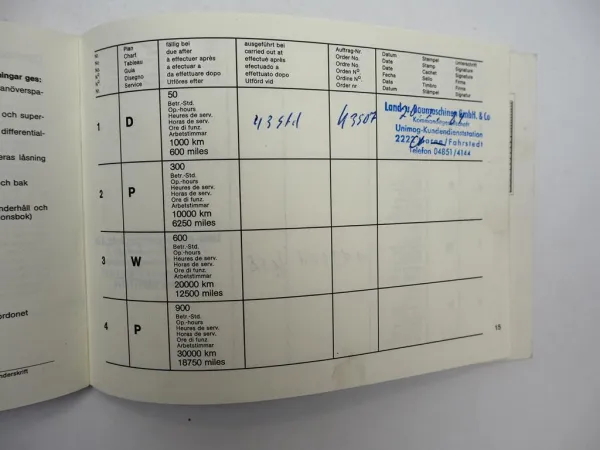 ningar ges:
anöverspa-
och super-
differential-
eras låsning
och bak
nderhåll och
onsbok)
ordonet
nderskrift
Plan
Chart
Tableau
Guia
Disegno
Service
fällig bei
due after
à effectuer après
a efectuar à
da effettuare dopo
Utföres efter
ausgeführt bei
carried out at
effectué après
efectuado a
effettuato dopo
Utförd vid
Auftrag-Nr.
Order No.
Ordre No.
Orden Nº.
Ordine Nº
Order nr
Datum
Date
Date
Fecha
Data
Datum
Stempel
Stamp
Cachet
Sello
Timbro
Stämpel
Unterschrift
Signature
Signature
Firma
Firma
Signatur
1
D
50
Betr.-Std.
Op.-hours
Heures de serv.
Horas de serv.
Ore di funz.
Arbetstimmar
1000 km
600 miles
43 Std
43507
Land- u. Baumaschinen GmbH. & Co
Unimog-Kundendienststation
Telefon 04851/4144
2
P
300
Betr.-Std.
Op.-hours
Heures de serv.
Horas de serv.
Ore di funz.
Arbetstimmar
10000 km
6250 miles
3
W
600
Betr.-Std.
Op.-hours
Heures de serv.
Horas de serv.
Ore di funz.
Arbetstimmar
20000 km
12500 miles
4
P
900
Betr.-Std.
Op.-hours
Heures de serv.
Horas de serv.
Ore di funz.
Arbetstimmar
30000 km
18750 miles
15